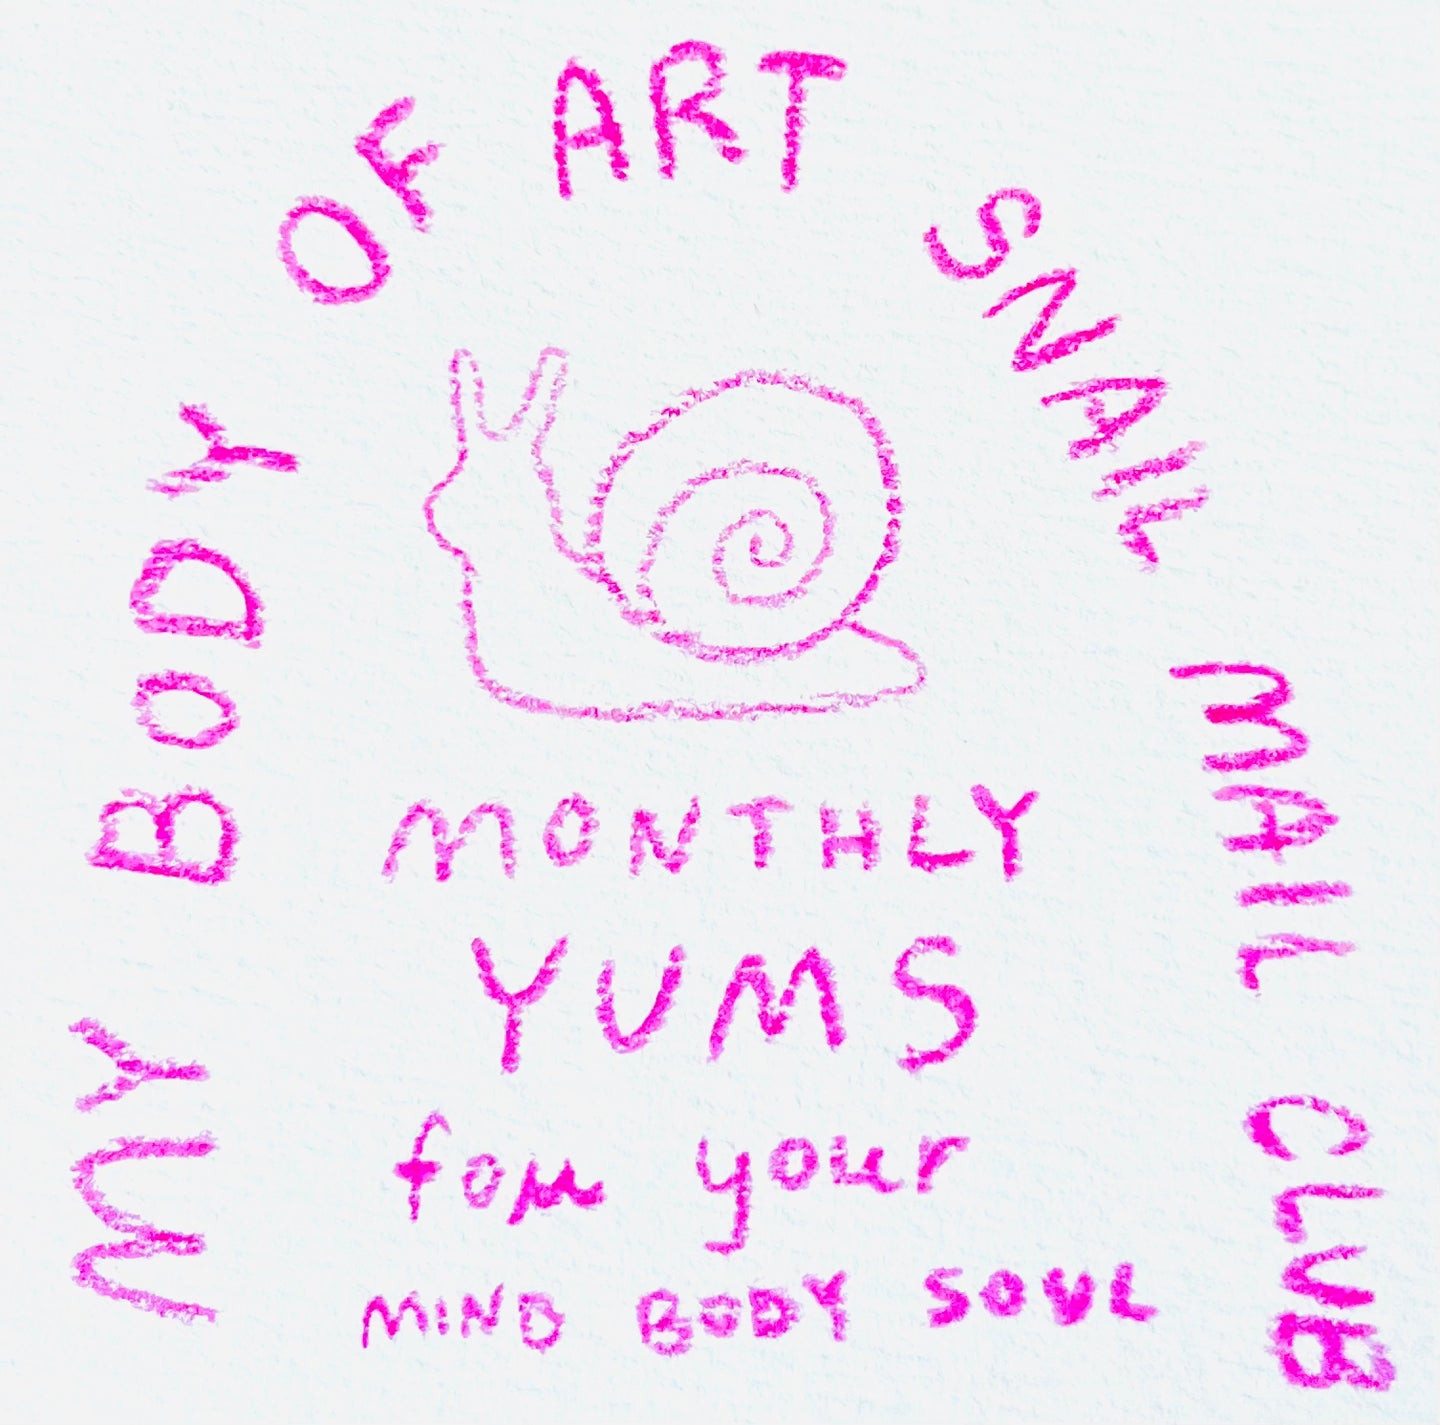 MY BODY OF ART SNAIL MAIL CLUB
MONTHLY
YUMS
for your
MIND BODY SOUL